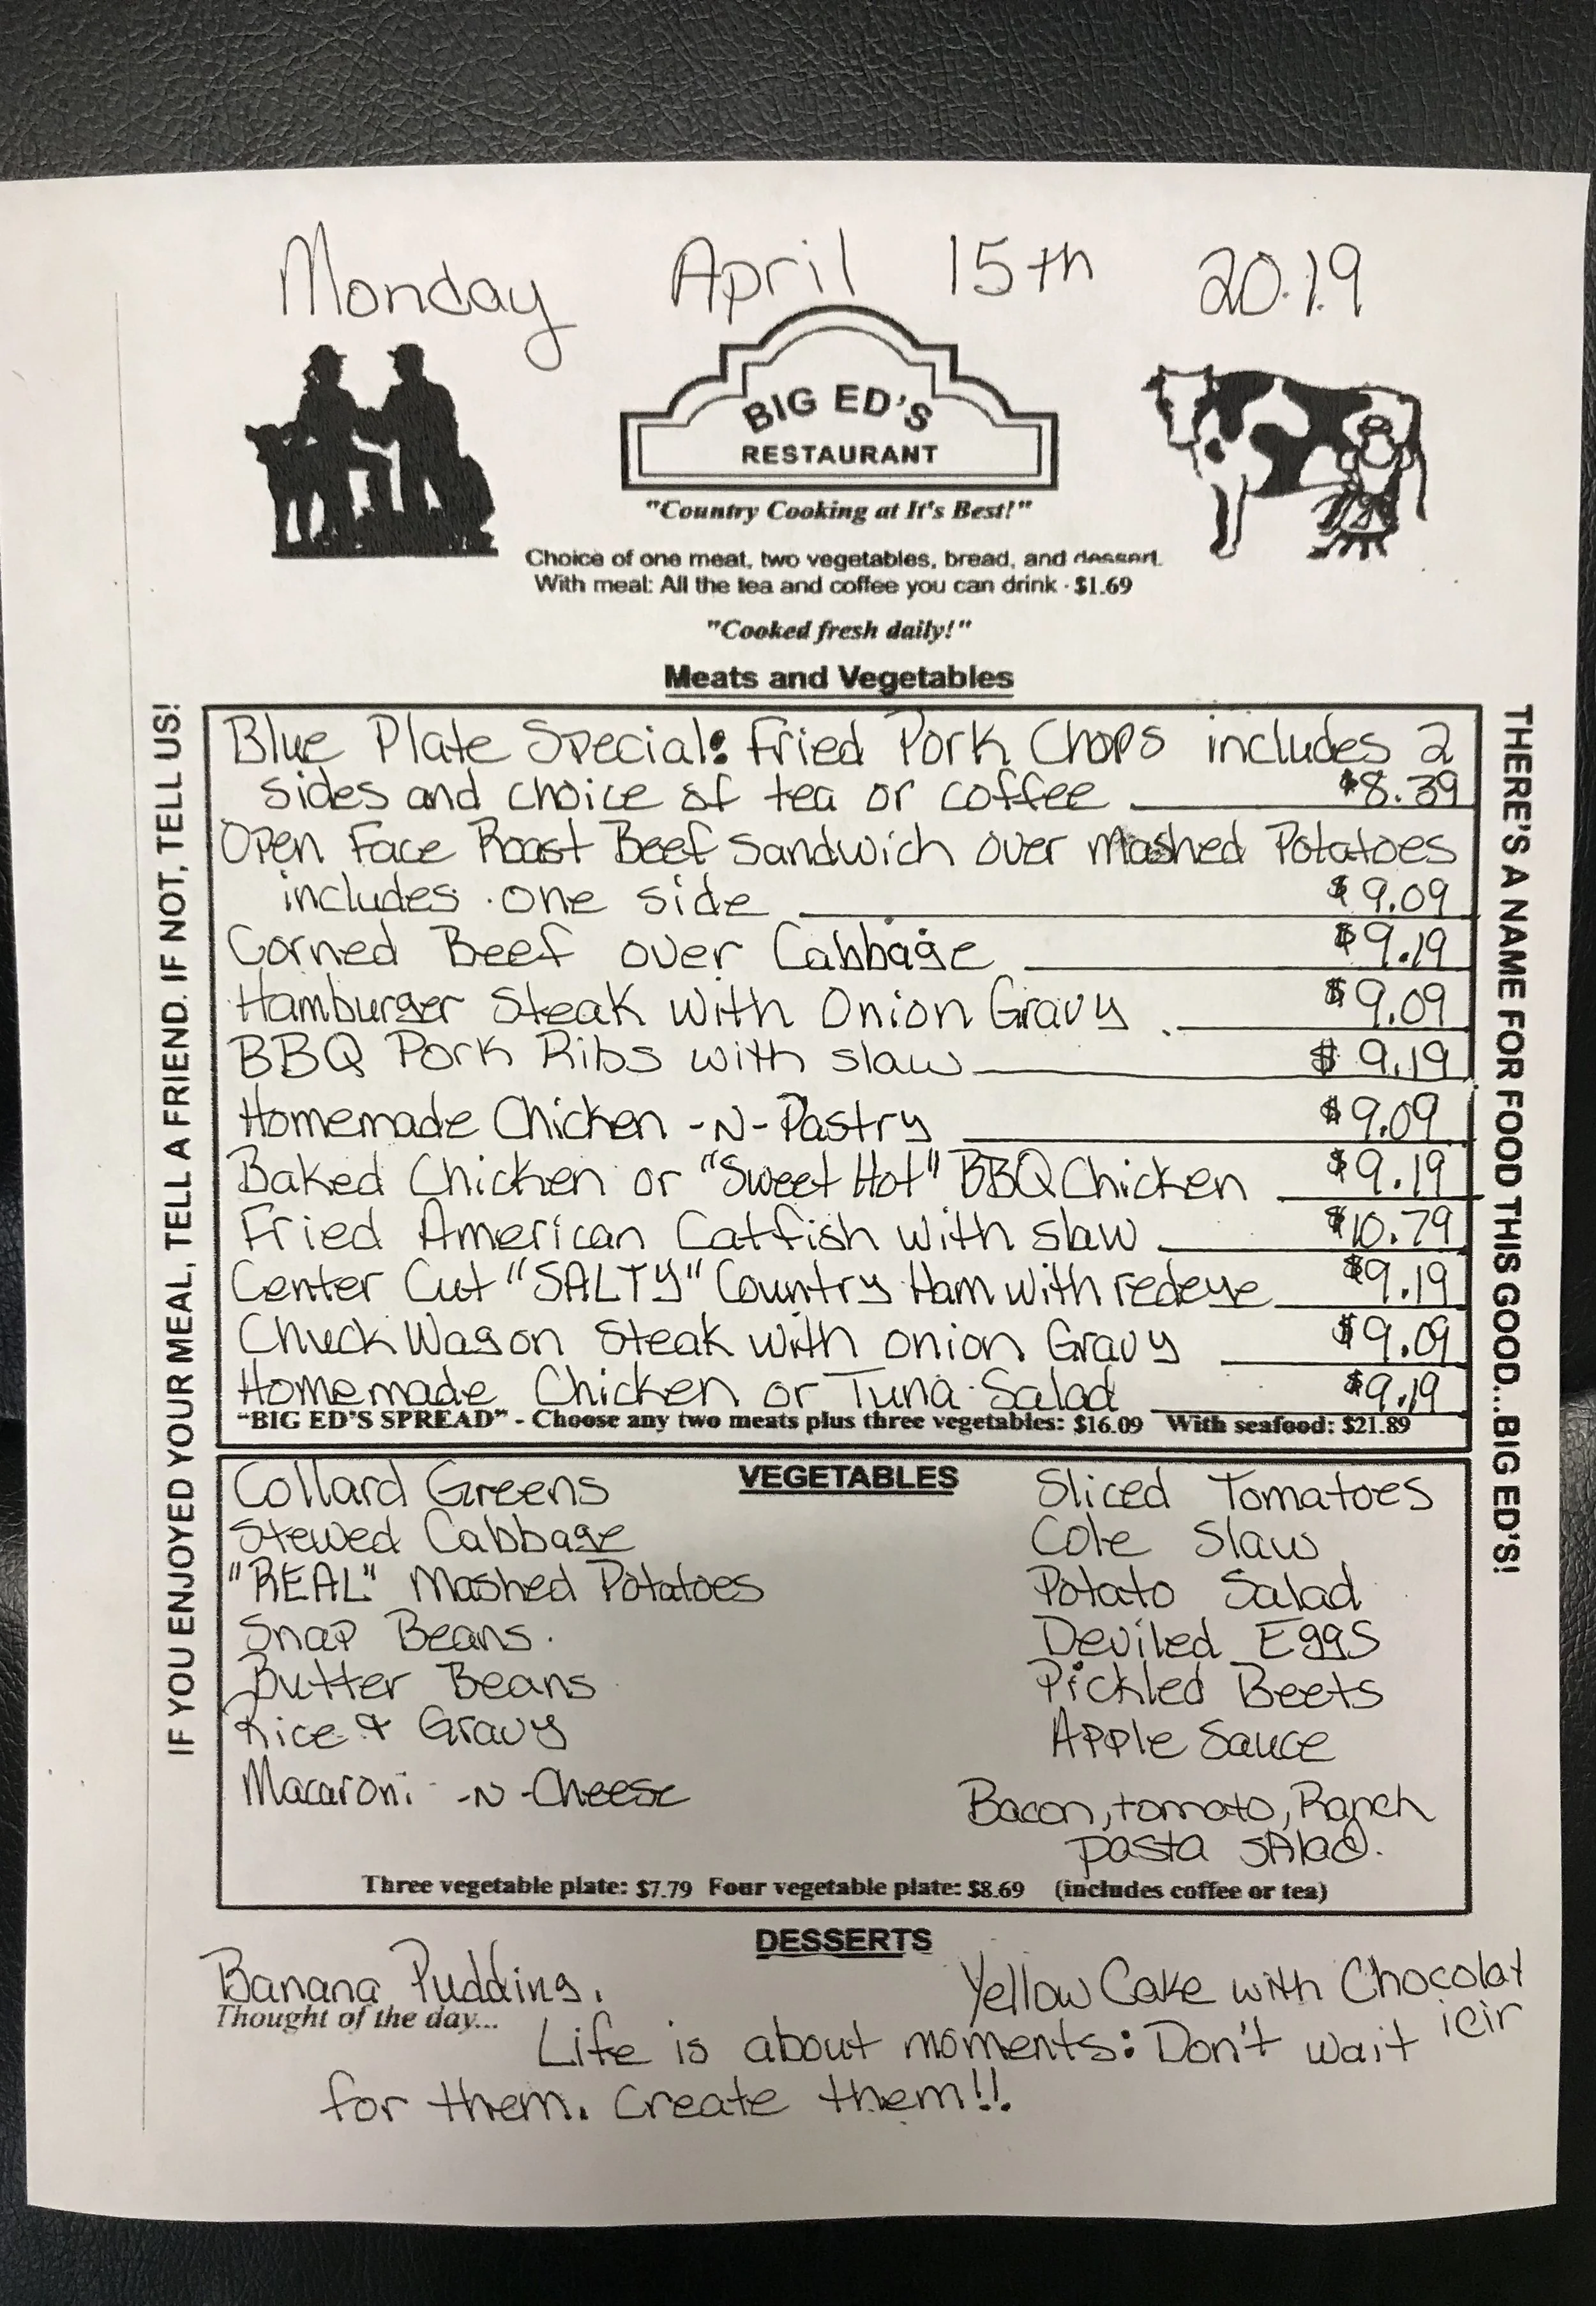 Monday April 15th 2019
BIG ED'S
RESTAURANT
"Country Cooking at It's Best!"
Choice of one meat, two vegetables, bread, and dessert.
With meal: All the tea and coffee you can drink - $1.69
"Cooked fresh daily!"
Meats and Vegetables
IF YOU ENJOYED YOUR MEAL, TELL A FRIEND. IF NOT, TELL US!
Blue Plate Special: Fried Pork Chops includes 2
sides and choice of tea or coffee $8.39
Open Face Roast Beef Sandwich over Mashed Potatoes
includes one side $9.09
Corned Beef over Cabbage $9.19
Hamburger Steak with Onion Gravy $9.09
BBQ Pork Ribs with slaw $9.19
Homemade Chicken -N- Pastry $9.09
Baked Chicken or "Sweet Hot" BBQ Chicken $9.19
Fried American Catfish with slaw $10.79
Center Cut "SALTY" Country Ham with redeye $9.19
Chuck Wagon Steak with onion Gravy $9.09
Homemade Chicken or Tuna Salad $9.19
"BIG ED'S SPREAD" - Choose any two meats plus three vegetables: $16.09 With seafood: $21.89
THERE'S A NAME FOR FOOD THIS GOOD...BIG ED'S!
VEGETABLES
Collard Greens
Stewed Cabbage
"REAL" Mashed Potatoes
Snap Beans
Butter Beans
Rice & Gravy
Macaroni -N- Cheese
Sliced Tomatoes
Cole Slaw
Potato Salad
Deviled Eggs
Pickled Beets
Apple Sauce
Bacon, tomato, Ranch
pasta sAlad.
Three vegetable plate: $7.79 Four vegetable plate: $8.69 (includes coffee or tea)
DESSERTS
Banana Pudding. Yellow Cake with Chocolat
icin
Thought of the day...
Life is about moments: Don't wait
for them. Create them!!